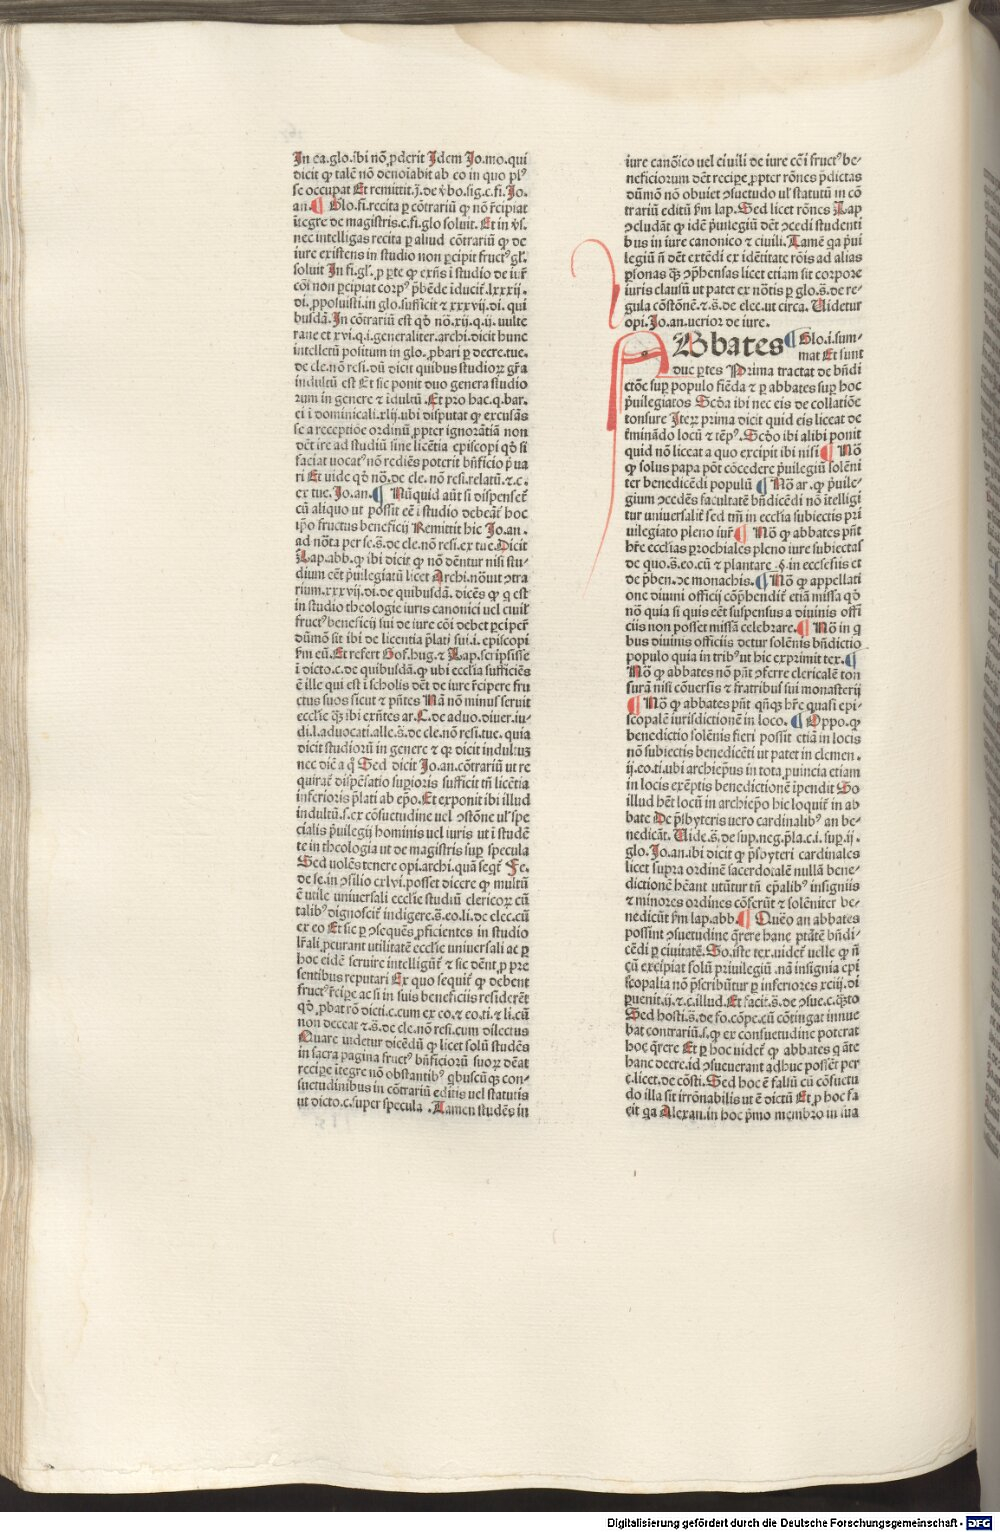 In ea.glo.ibi nõ ꝓderit Idem Jo.mo.qui
dicit ꝙ talē nõ denoĩabit ab eo in quo plꝰ
se occupat Et remittit.j.de v̓bo.sig.c.fi.Jo.
an.¶ Glo.fi.recita ꝑ cõtrariũ ꝙ nõ r̃cipiat
ĩtegre de magistris.c.fi.glo soluit. Et in v̓s.
nec intelligas recita ꝑ aliud cõtrariũ ꝙ de
iure existens in studio non ꝑcipit fructꝰ gl̃.
soluit In fi.gl̃.ꝓ ꝑte ꝙ exñs ĩ studio de iur̃
cõi non ꝑcipiat corpꝰ p̃bẽde ĩducit̃.lxxxij.
di.ꝓposuisti.in glo.sufficit ⁊ xxxvij.di.qui
busdã.In cõtrariũ est qđ nõ.xij.q.ij.vulte
rane et xvi.q.i.generaliter.archi.dicit hunc
intellectũ positum in glo.ꝓbari ꝑ decre.tue.
de cle.nõ resi.dũ dicit quibus studioꝝ gr̃a
indultũ est Et sic ponit duo genera studio
rum in genere ⁊ ĩdultũ.Et pro hac.q.bar.
ei ĩ dominicali.xlij.ubi disputat ꝙ excusãs
se a receptiõe ordinũ ꝓpter ignorãtiã non
dẽt ire ad studiũ sine licẽtia episcopi qđ si
faciat uocatꝰ nõ rediẽs poterit bñficio p̃ua
ri Et uide qđ nõ.de cle.nõ resi.relatũ.⁊.c.
ex tue.Jo.an.¶ Nũquid aũt si dispenset̃
cũ aliquo ut possit eẽ ĩ studio debeãt̃ hoc
ip̃o fructus beneficij Remittit hic Jo.an.
ad nõta per se.s̃.de cle.nõ resi.ex tue.Dicit
Lap.abb.ꝙ ibi dicit ꝙ nõ dẽntur nisi stu-
dium eẽt p̃uilegiatũ licet Archi.nõuit ꝯtra
rium.xxxvij.di.de quibusdã.dicẽs ꝙ q est
in studio theologie iuris canonici uel ciuil̃
fructꝰ beneficij sui de iure cõi debet ꝑciper̃
dũmõ sit ibi de licentia p̃lati sui.i. episcopi
fm eũ.Et refert Gof.hug.⁊ Lap.scripsisse
ĩ dicto.c.de quibusdã.ꝙ ubi ecclia sufficiẽs
ẽ ille qui est ĩ scholis dẽt de iure r̃cipere fru
ctus suos sicut ⁊ p̃ntes Nã nõ minus seruit
ecclie q̃s ibi exñtes ar.C.de aduo.diuer.iu-
di.l.aduocati.alle.s̃.de cle.nõ resi.tue. quia
dicit studiorũ in genere ⁊ ꝙ dicit indultuꝫ
nec diẽ a q̃ Sed dicit Jo.an.cõtrariũ ut re
quirat̃ dispẽsatio supioris sufficit tñ licẽtia
inferioris p̃lati ab ep̃o.Et exponit ibi illud
indultũ.s.ex cõsuetudine uel ꝯstõne ul̃ spe
cialis p̃uilegij hominis uel iuris ut ĩ studẽ
te in theologia ut de magistris sup̃ specula
Sed uolẽs tenere opi.archi.quã seqr̃ Fe.
de se.in ꝯsilio cxlvi.posset dicere ꝙ multũ
ẽ utile uniuersali ecclie studiũ clericoꝝ cũ
talibꝰ dignoscit̃ indigere.s̃.eo.li.de elec.cũ
ex eo Et sic ꝑ ꝯsequẽs ꝓficientes in studio
lr̃ali ꝓcurant utilitatẽ ecclie uniuersali ac ꝑ
hoc eidẽ seruire intelligũt̃ ⁊ sic dẽnt ꝓ pre
sentibus reputari Ex quo sequit̃ ꝙ debent
fructꝰ r̃cipe ac si in suis beneficiis residerẽt
qđ ꝓbat rõ dicti.c.cum ex eo.⁊ eo.ti.⁊ li.cũ
non deceat ⁊.s̃.de cle.nõ resi.cum dilectus
Quare uidetur dicẽdũ ꝙ licet solũ studẽs
in sacra pagina fructꝰ bñficiorũ suoꝝ dẽat
recipe ĩtegre nõ obstantibꝰ qbuscũqꝫ con-
suetudinibus in cõtrariũ editis uel statutis
ut dicto.c.super specula .Tamen studẽs in
iure canõico uel ciuili de iure cõi fructꝰ be-
neficiorum dẽt recipe ꝓpter rõnes p̃dictas
dũmõ nõ obuiet ꝯsuetudo ul̃ statutũ in cõ
trariũ editũ fm lap.Sed licet rõnes Lap
ꝯcludãt ꝙ idẽ p̃uilegiũ dẽt ꝯcedi studenti
bus in iure canonico ⁊ ciuili.Tamẽ qa p̃ui
legiũ ñ dẽt extẽdi ex idẽtitate rõis ad alias
ꝑsonas q̃s ꝯp̃hensas licet etiam sit corpore
iuris clausũ ut patet ex nõtis ꝑ glo.s̃.de re-
gula cõstõne.⁊.s̃.de elec.ut circa. Uidetur
opi.Jo.an.uerior de iure.
ABbates ¶Glo.i.sum-
mat Et sunt
due ꝑtes Prima tractat de bñdi
ctõe suꝑ populo fiẽda ⁊ ꝑ abbates suꝑ hoc
p̃uilegiatos Scđa ibi nec eis de collatiõe
tonsure Iteꝝ prima dicit quid eis liceat de
t̃minãdo locũ ⁊ tẽpꝰ.Scđo ibi alibi ponit
quid nõ liceat a quo excipit ibi nisi ¶ Nõ
ꝙ solus papa põt cõcedere p̃uilegiũ solẽni
ter benedicẽdi populũ ¶ Nõ ar.ꝙ p̃uile-
gium ꝯcedẽs facultatẽ bñdicẽdi nõ ĩtelligi
tur uniuersalit̃ sed tm̃ in ecclia subiectis pri
uilegiato pleno iur̃ ¶ Nõ ꝙ abbates p̃nt
hr̃e ecclias ꝑochiales pleno iure subiectas
de quo.s̃.eo.cũ ⁊ plantare .§.in ecclesiis et
de p̃ben.ꝯe monachis.¶ Nõ ꝙ appellati
one diuini officij cõp̃hendit̃ etiã missa qđ
nõ quia si quis eẽt suspensus a diuinis offi
ciis non posset missã celebrare.¶ Nõ in q
bus diuinis officiis detur solẽnis bñdictio
populo quia in tribꝰ ut hic exprimit tex.¶
Nõ ꝙ abbates nõ p̃nt ꝯferre clericalẽ ton
surã nisi cõuersis ⁊ fratribus sui monasterij
¶ Nõ ꝙ abbates p̃nt qñqꝫ hr̃e quasi epi-
scopalẽ iurisdictionẽ in loco. ¶ Oppo.ꝙ
benedictio solẽnis fieri possit etiã in locis
nõ subiectis benedicẽti ut patet in clemen.
ij.eo.ti.ubi archiep̃us in tota ꝓuincia etiam
in locis exẽptis benedictionẽ ĩpendit So
illud hẽt locũ in archiep̃o hic loquit̃ in ab
bate De p̃sbyteris uero cardinalibꝰ an be-
nedicãt. Uide.s̃.de sup.neg.p̃la.c.i.sup.ij.
glo.Jo.an.ibi dicit ꝙ p̃sbyteri cardinales
licet supra ordinẽ sacerdotalẽ nullã bene-
dictionẽ hẽant utũtur tñ ep̃alibꝰ insigniis
⁊ minores ordines cõferũt ⁊ solẽniter be-
nedicũt fm lap.abb.¶ Quẽo an abbates
possint ꝯsuetudine q̃rere hanc ptãtẽ bñdi-
cẽdi ꝑ ciuitatẽ.So.iste tex.uidet̃ uelle ꝙ ñ
cũ excipiat solũ priuilegiũ .nã insignia epi
scopalia nõ p̃scribũtur ꝑ inferiores xciij.di
ꝑuenit.ij.⁊.c.illud.Et facit.s̃.de ꝯsue.c.q̃sto
Sed hosti.s̃.de fo.cõpe.cũ cõtingat innue
bat contrariũ.s.ꝙ ex consuetudine poterat
hoc q̃rere Et ꝑ hoc uidet̃ ꝙ abbates q ãte
hanc decre.id ꝯsueuerant adhuc possẽt per
c.licet.de cõsti.Sed hoc ẽ falsũ cũ cõsuetu
do illa sit irrõnabilis ut ẽ dictũ Et ꝓ hoc fa
cit qa Alexan.in hoc p̃mo membro in sua
Digitalisierung gefördert durch die Deutsche Forschungsgemeinschaft - DFG